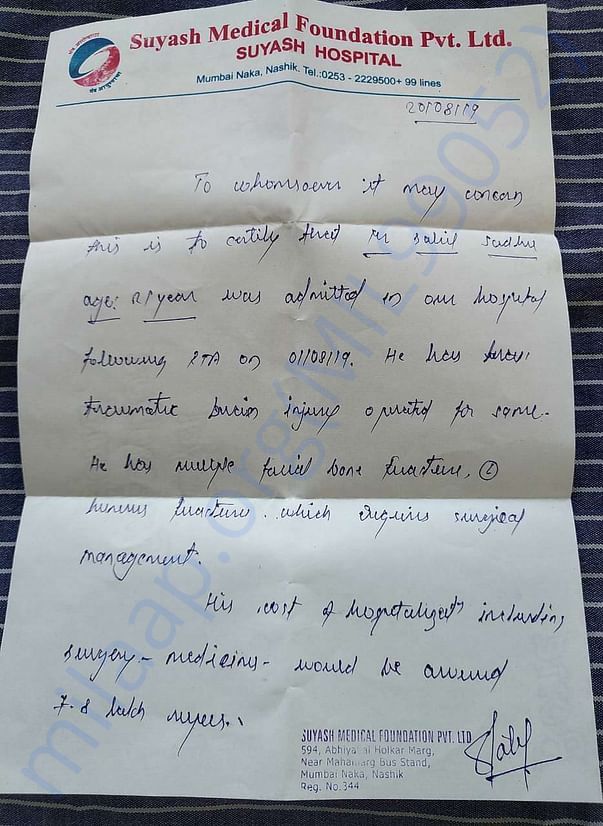 Suyash Medical Foundation Pvt. Ltd.
SUYASH HOSPITAL
Mumbai Naka, Nashik. Tel.:0253 - 2229500+ 99 lines
20/08/19
To whomsoever it may concern
this is to certify that Mr Sahil
age: 21 year was admitted in our hospital
following RTA on 01/08/19. He has
traumatic brain injury operated for same.
He has multiple facial bone fracture, (L)
humerus fracture. which requires surgical
management.
His cost of including
surgery - medicine - would be around
7-8 lakh rupees.
SUYASH MEDICAL FOUNDATION PVT. LTD
594, Holkar Marg,
Near Mahamarg Bus Stand,
Mumbai Naka, Nashik
Reg. No.344
milaap.org(MIL199052)